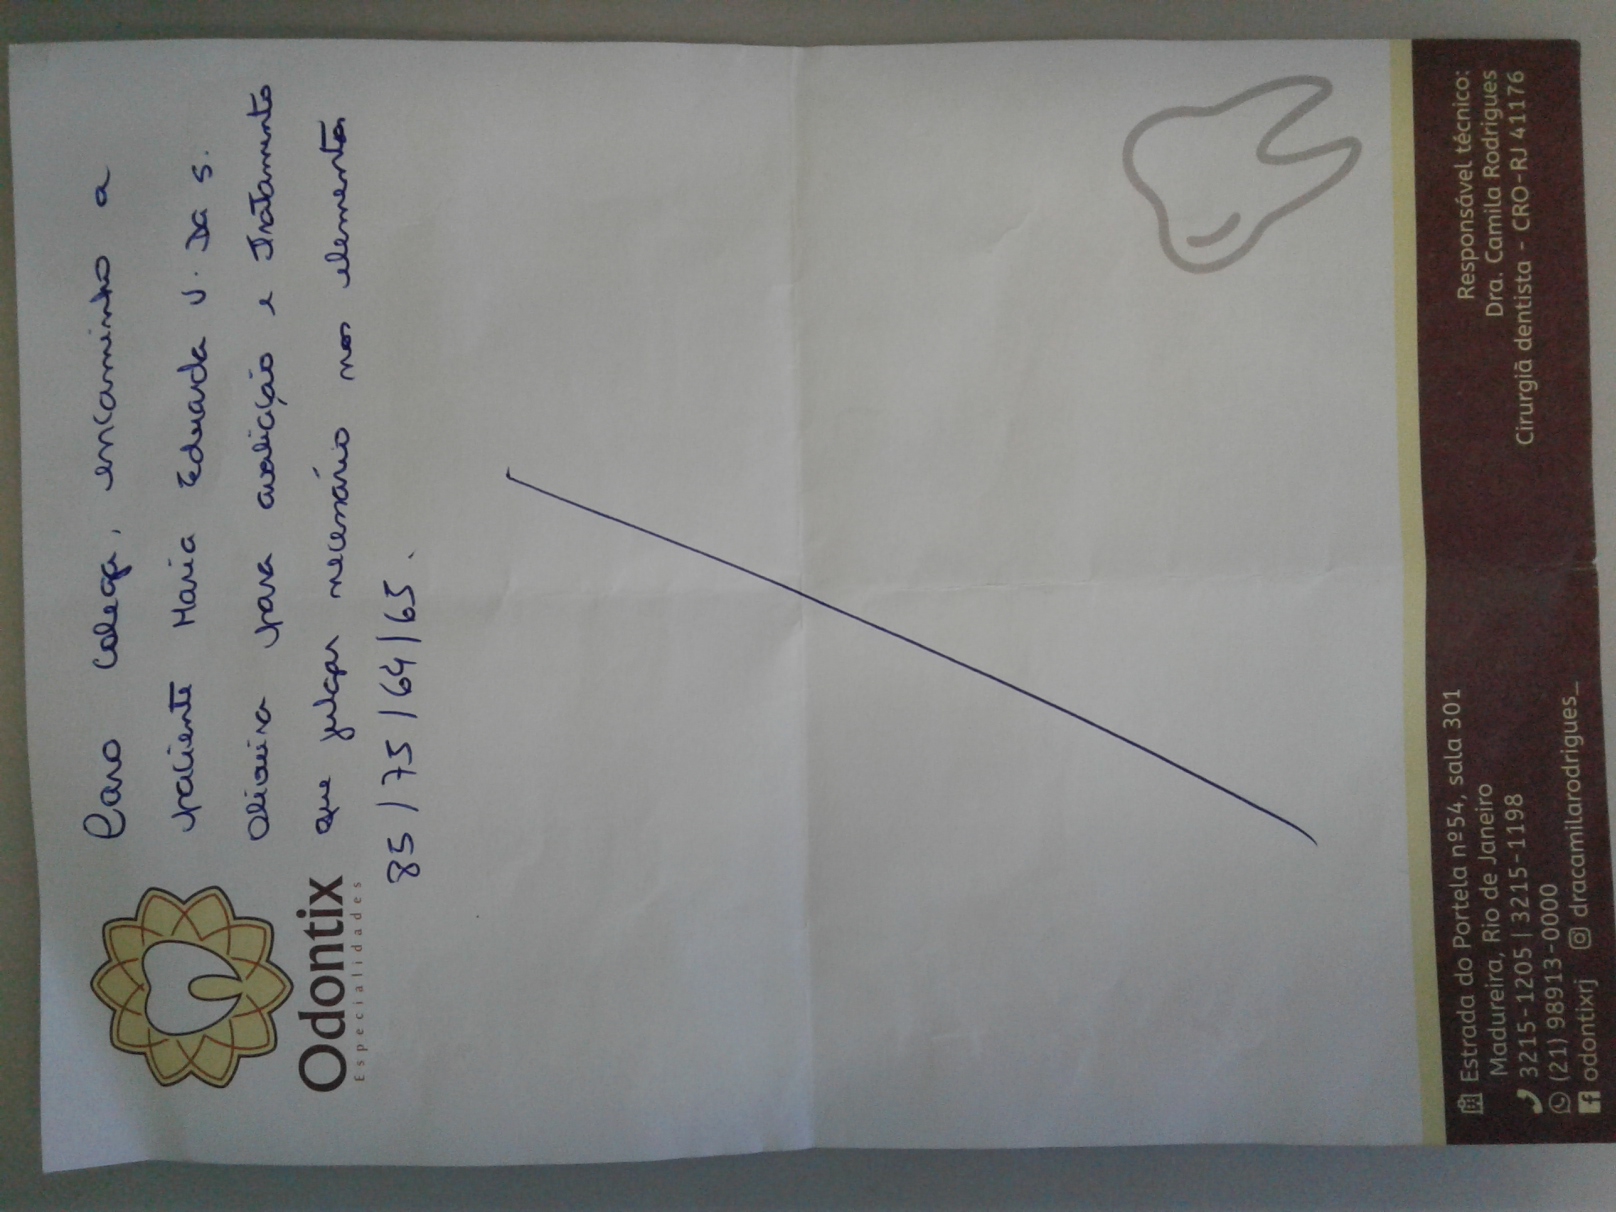 Caro colega, encaminho a
paciente Maria Eduarda V. Da S.
Oliveira para avaliação e Tratamento
que julgar necessário nos elementos
85 / 75 / 64 / 65.
Odontix
Especialidades
Estrada do Portela nº54, sala 301
Madureira, Rio de Janeiro
3215-1205 | 3215-1198
(21) 98913-0000
odontixrj dracamilarodrigues_
Responsável técnico:
Dra. Camila Rodrigues
Cirurgiã dentista - CRO-RJ 41176